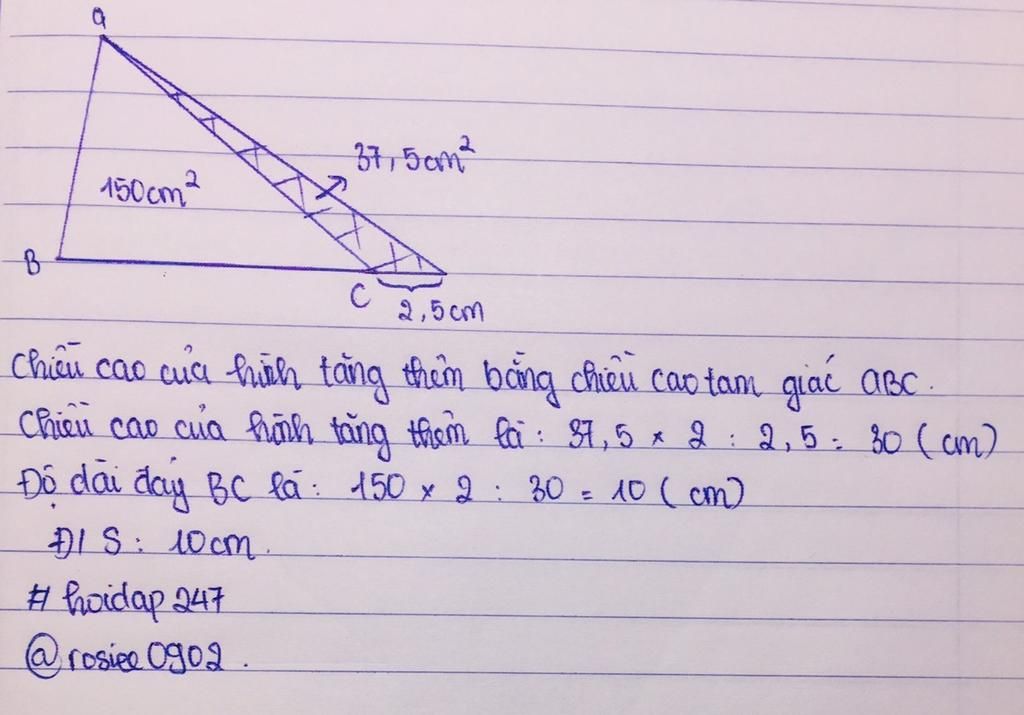 a
37,5cm²
150cm²
B
C
2,5cm
Chiều cao của hình tăng thêm bằng chiều cao tam giác ABC.
Chiều cao của hình tăng thêm là: 37,5 × 2 : 2,5 = 30 (cm)
Độ dài đáy BC là: 150 × 2 : 30 = 10 (cm)
Đ/S: 10cm.
# hoidap247
@rosiee0902.